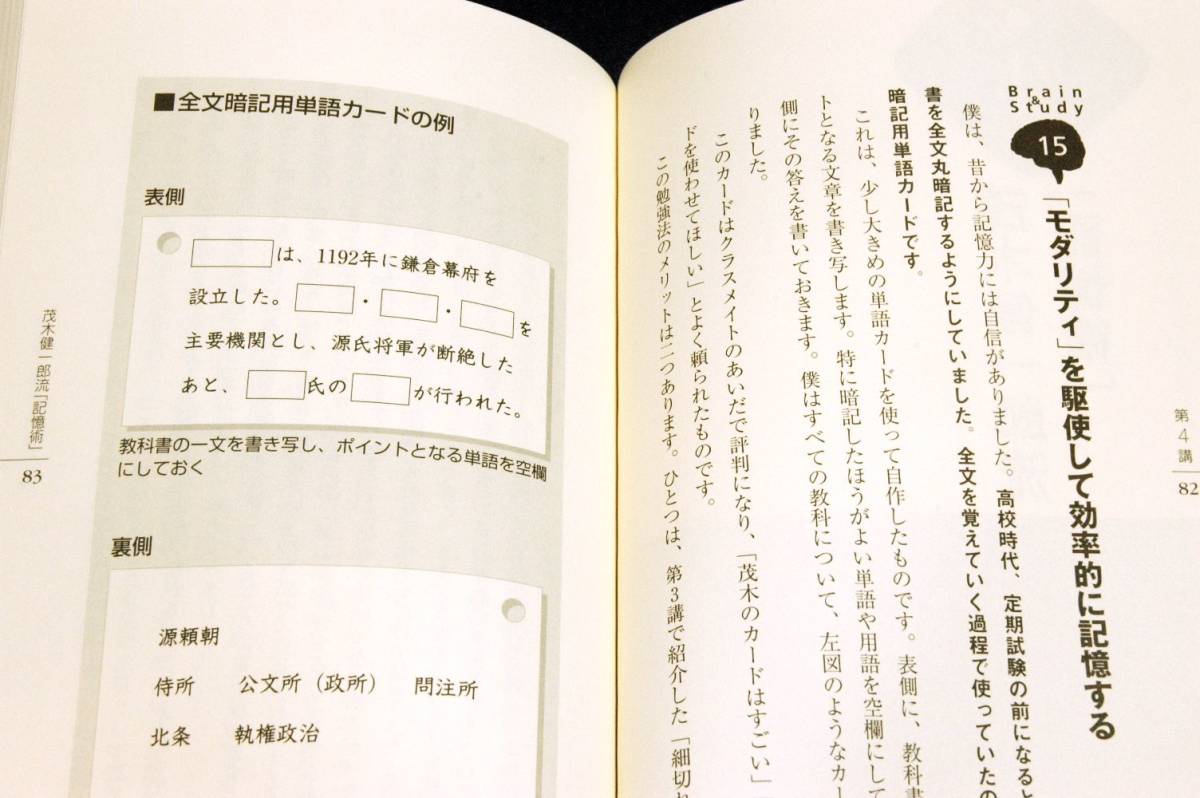 Brain
&
Study
15
「モダリティ」を駆使して効率的に記憶する
僕は、昔から記憶力には自信がありました。高校時代、定期試験の前になると
書を全文丸暗記するようにしていました。全文を覚えていく過程で使っていたの
暗記用単語カードです。
これは、少し大きめの単語カードを使って自作したものです。表側に、教科書
トとなる文章を書き写します。特に暗記したほうがよい単語や用語を空欄にして
側にその答えを書いておきます。僕はすべての教科について、左図のようなカー
りました。
このカードはクラスメイトのあいだで評判になり、「茂木のカードはすごい」
ドを使わせてほしい」とよく頼られたものです。
この勉強法のメリットは二つあります。ひとつは、第3講で紹介した「細切れ
第4講
82
■全文暗記用単語カードの例
表側
は、1192年に鎌倉幕府を
設立した。 ・ ・ を
主要機関とし、源氏将軍が断絶した
あと、 氏の が行われた。
教科書の一文を書き写し、ポイントとなる単語を空欄
にしておく
裏側
源頼朝
侍所 公文所（政所） 問注所
北条 執権政治
茂木健一郎流「記憶術」
83